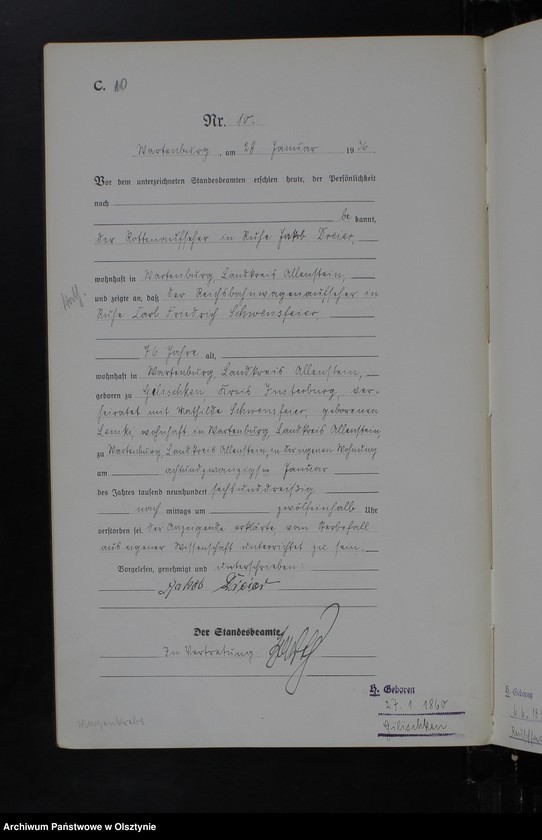 C. 10
Nr. 10.
Wartenburg, am 28 Januar 1936
Vor dem unterzeichneten Standesbeamten erschien heute, der Persönlichkeit
nach
bekannt,
der Rottenaufseher in Ruhe Jakob Dreier,
wohnhaft in Wartenburg, Landkreis Allenstein,
und zeigte an, daß der Reichsbahnwagenaufseher in
Ruhe Carl Friedrich Schwensfeier,
76 Jahre alt,
wohnhaft in Wartenburg, Landkreis Allenstein,
geboren zu Gelischken, Kreis Insterburg, ver-
heiratet mit Mathilde Schwensfeier, geborenen
Lemke, wohnhaft in Wartenburg, Landkreis Allenstein,
zu Wartenburg, Landkreis Allenstein, in der eigenen Wohnung
am achtundzwanzigsten Januar
des Jahres tausend neunhundert sechsunddreißig
nach mittags um zwölfeinhalb Uhr
verstorben sei. Der Anzeigende erklärte, vom Sterbefall
aus eigener Wissenschaft unterrichtet zu sein.
Vorgelesen, genehmigt und unterschrieben:
Jakob Dreier
Der Standesbeamte
In Vertretung
H. Geboren
27. 1. 1860
Gilischken
Magenkrebs
H. Geboren
Archiwum Państwowe w Olsztynie